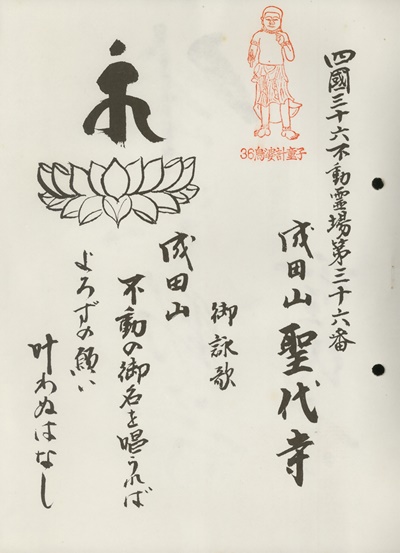 四國三十六不動霊場第三十六番
36烏婆計童子
成田山 聖代寺
御詠歌
成田山
不動の御名を唱うれば
よろずの願い
叶わぬはなし